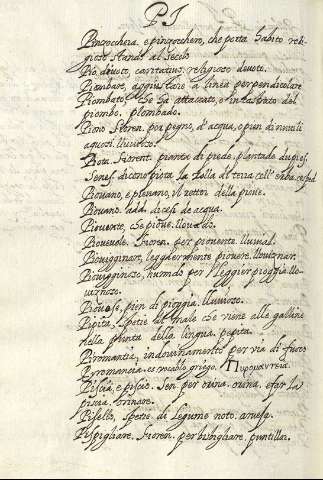 P I
Pinzochera. e pinzochero, che porta habito reli-
gioso stando al secolo
Pio, devoto, caritativo, religioso devoto.
Piombare, aggiustare a linea perpendicolare
Piombato, che ha attaccato, o incastrato del
piombo, plombado.
Piota Fiorent. pianta di piede, plantado du pies,
Senes. dicono piota la zolla di terra coll' erba
Piovano, e plevano, il rettor della pieve.
Piovano. add. dicesi de acqua.
Piovente, che piove, llovendo.
Piovevole. Fioren. per piovente lluvial.
Piovigginar, leggiermente piovere. lloviznar.
Piovigginoso, humido per leggier pioggia llo-
viznoso.
Piovoso, pien di pioggia, lluvioso.
Pipita, spetie de male che viene alle galline
nella punta della lingua, pepita.
Piromantia, indovinamento per via di fuoco
Pyromancia. es vocablo griego. Πυρομαντεία.
Piscia, e piscio. Sen. per orina, orina, e far la
piscia, orinare.
Pisello, spetie di legume noto. arveja.
Pispigliare. Fioren. per bisbigliare,